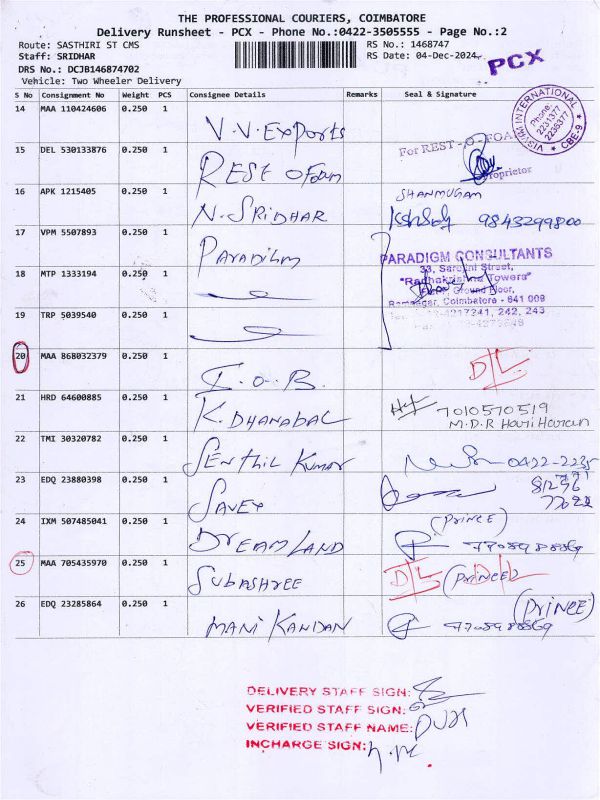 THE PROFESSIONAL COURIERS, COIMBATORE
Delivery Runsheet - PCX - Phone No.:0422-3505555 - Page No.:2
Route: SASTHIRI ST CMS
RS No.: 1468747
Staff: SRIDHAR
RS Date: 04-Dec-2024
PCX
DRS No.: DCJB146874702
Vehicle: Two Wheeler Delivery
S No Consignment No Weight PCS Consignee Details Remarks Seal & Signature
14 MAA 110424606 0.250 1 V.V. Exports
VISYAM INTERNATIONAL
Phone:
2231377
2235377
★ CBE-9 ★
15 DEL 530133876 0.250 1 REST O Foam
For REST-O-FOAM
Proprietor
16 APK 1215405 0.250 1 N. SRIDHAR
SHANMUGAM
9843299800
17 VPM 5507893 0.250 1 Paradigm
PARADIGM CONSULTANTS
33, Sarojini Street,
"Radhakrishna Towers"
Ground Floor,
Ramnagar, Coimbatore - 641 009
18 MTP 1333194 0.250 1
19 TRP 5039540 0.250 1
20 MAA 868032379 0.250 1 I.O.B.
DL
21 HRD 64600885 1 0.250 1 K. DHANABAL
7010570519
M.D.R Hari Haran
22 TMI 30320782 0.250 1 SENTHIL KUMAR
0422-2235
23 EDQ 23880398 0.250 1 SAVEX
24 IXM 507485041 0.250 1 DREAMLAND
(PRINCE)
25 MAA 705435970 0.250 1 SUBASHREE
DL (PRINCE) DL
26 EDQ 23285864 0.250 1 MANI KANDAN
(PRINCE)
DELIVERY STAFF SIGN:
VERIFIED STAFF SIGN:
VERIFIED STAFF NAME:
INCHARGE SIGN: